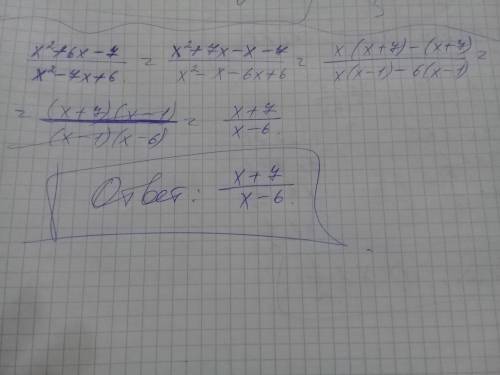 (x²+6x-7)/(x²-7x+6) = (x²+7x-x-7)/(x²-x-6x+6) = (x(x+7)-(x+7))/(x(x-1)-6(x-1)) =
= ((x+7)(x-1))/((x-1)(x-6)) = (x+7)/(x-6)
Ответ: (x+7)/(x-6)